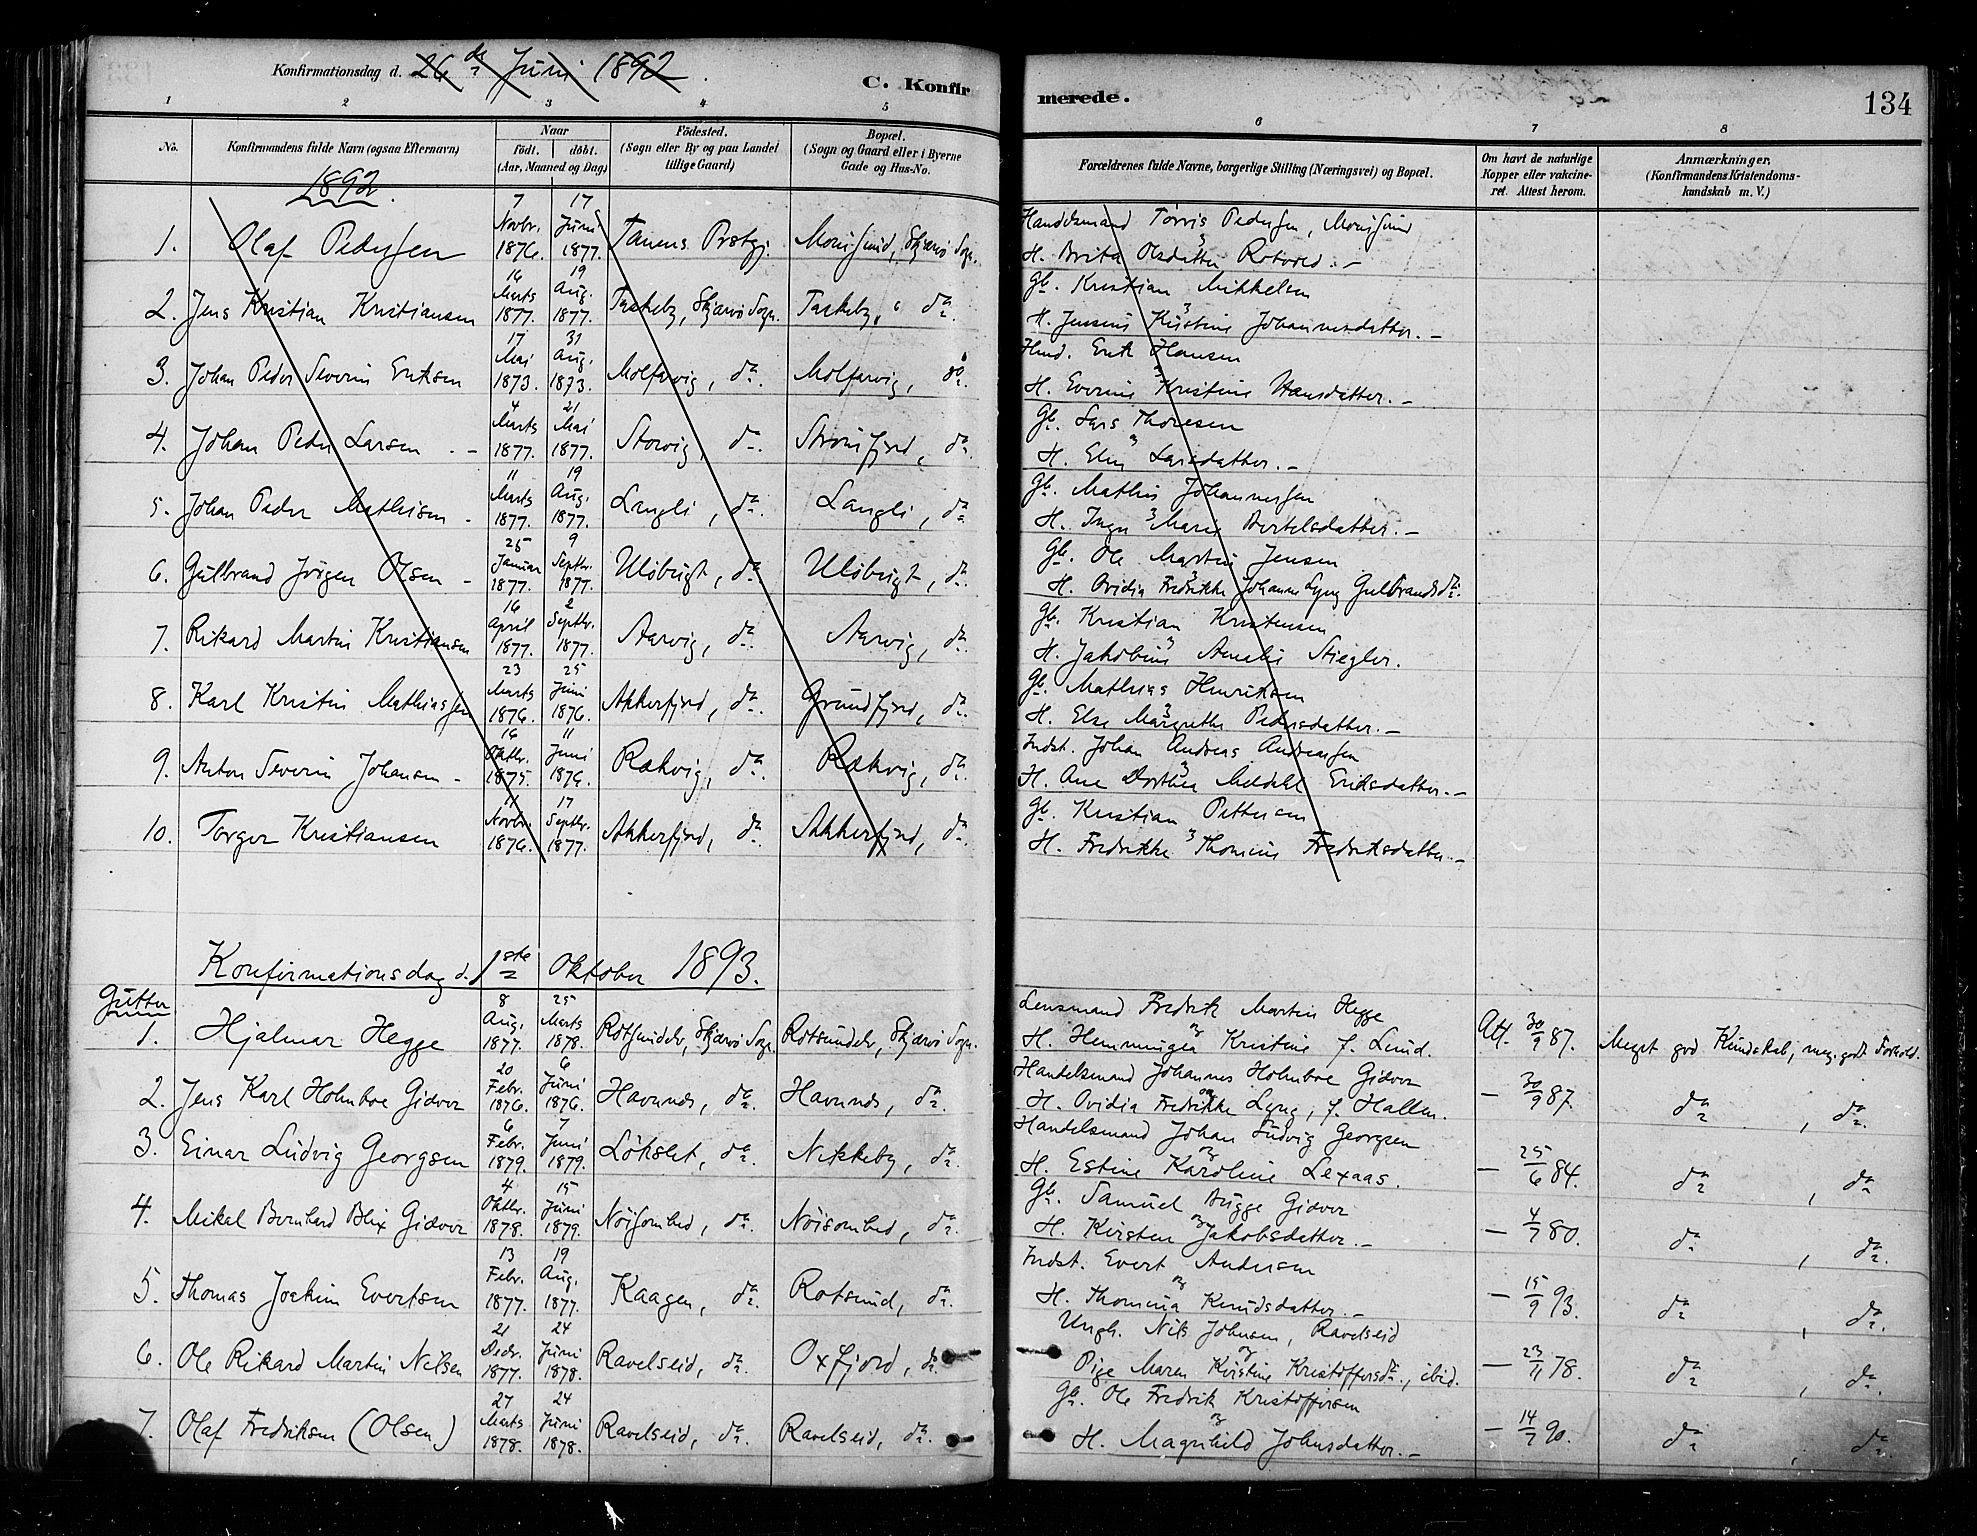 Konfirmationsdag d. 26de Juni 1892.
C. Konfirmerede.
134
1 2 3 4 5 6 7 8
No.
Konfirmandens fulde Navn (ogsaa Efternavn)
Naar
födt. döbt.
(Aar, Maaned og Dag)
Födested.
(Sogn eller By og paa Landet
tillige Gaard)
Bopæl.
(Sogn og Gaard eller i Byerne
Gade og Hus-No.
Forældrenes fulde Navne, borgerlige Stilling (Næringsvei) og Bopæl.
Om havt de naturlige
Kopper eller vakcine-
ret. Attest herom.
Anmærkninger,
(Konfirmandens Kristendoms-
kundskab m. V.)
1892.
1. Olaf Pedersen 7 Novbr. 1876. 17 Juni 1877. Tanens Prstgj. Skjærvö Sogn. Handelsmand Törris Pedersen,
H. Brita Olsdatter
2. Jens Kristian Kristiansen 16 Marts 1877. 19 Aug. 1877. Taskeby, Skjærvö Sogn. Taskeby, do. Gb. Kristian Mikkelsen
H. Kristine Johannesdatter. –
3. Johan Peder Severin Eriksen 17 Mai 1873. 31 Aug. 1873. Molfarvig, do. Molfarvig, do. Erik Hansen
H. Kristine Hansdatter. –
4. Johan Peder Larsen. – 4 Marts 1877. 21 Mai 1877. Storvig, do. Strömfjord, do. Gb. Lars Thoresen
H. Elen Larsdatter. –
5. Johan Peder Mathisen – 11 Marts 1877. 19 Aug. 1877. Langli, do. Langli, do. Gb. Mathis Johannesen
H. Marie Bertelsdatter. –
6. Gulbrand Jörgen Olsen – 25 Januar 1877. 9 Septbr. 1877. Ulöbugt, do. Ulöbugt, do. Gb. Ole Martin Jensen
H. Ovidia Fredrikke Johanne Lyng Gulbrandsdr.
7. Rikard Martin Kristiansen 16 April 1877. 2 Septbr. 1877. Aarvig, do. Aarvig, do. Gb. Kristian Kristensen
H. Jakobine Amalie Stiegler.
8. Karl Kristin Mathiassen 23 Marts 1876. 25 Juni 1876. Akkerfjord, do. Grundfjord, do. Gb. Mathias Henriksen
H. Else Margrethe Pedersdatter. –
9. Anton Severin Johansen – 16 Oktbr. 1875. 11 Juni 1876. Rækvig, do. Rækvig, do. Indst. Johan Andreas Andreasen
H. Ane Dorthea Meldahl Eriksdatter. –
10. Torger Kristiansen 11 Novbr. 1876. 17 Septbr. 1877. Akkerfjord, do. Akkerfjord, do. Gb. Kristian Pettersen
H. Fredrikke Thomine Fredriksdatter. –
Konfirmationsdag d. 1ste Oktober 1893.
Gutter
1. Hjalmar Hegge 8 Aug. 1877. 25 Marts 1878. Rotsundelv, Skjærvö Sogn. Rotsundelv, Skjærvö Sogn. Lensmand Fredrik Martin Hegge
H. Hemmingea Kristine f. Lund. Att. 30/9 87. Meget god Kundskab, meg. godt Forhold.
2. Jens Karl Holmboe Gidver 20 Febr. 1876. 6 Juni 1876. Havnnes, do. Havnnes, do. Handelsmand Johannes Holmboe Gidver
H. Ovidia Fredrikke Lyng, f. Hallen. – 30/9 87. do, do.
3. Einar Ludvig Georgsen 6 Febr. 1879. 7 Juni 1879. Lökslet, do. Nikkeby, do. Handelsmand Johan Ludvig Georgsen
H. Estine Karoline Lexaas. – 25/6 84. do, do
4. Mikal Bernhard Blix Gidver 4 Oktbr. 1878. 15 Juni 1879. Nöisomhed, do. Nöisomhed, do. Gb. Samuel Bugge Gidver
H. Kirsten Jakobsdatter. – – 4/7 80. do, do.
5. Thomas Joakim Evertsen 13 Febr. 1877. 19 Aug. 1877. Kaagen, do. Rotsund, do. Indst. Evert Andersen
H. Thomina Knudsdatter. – – 15/9 93. do, do.
6. Ole Rikard Martin Nilsen 21 Decbr. 1877. 24 Juni 1878. Ravelseid, do. Oxfjord, do. Ungk. Nils Johnsen, Ravelseid
Pige Maren Kirstine Kristoffersdr., ibid. – 23/11 78. do, do.
7. Olaf Fredriksen (Olsen) 27 Marts 1878. 24 Juni 1878. Ravelseid, do. Ravelseid, do. Gb. Ole Fredrik Kristoffersen
H. Magnhild Johnsdatter. – – 14/7 90. do, do.